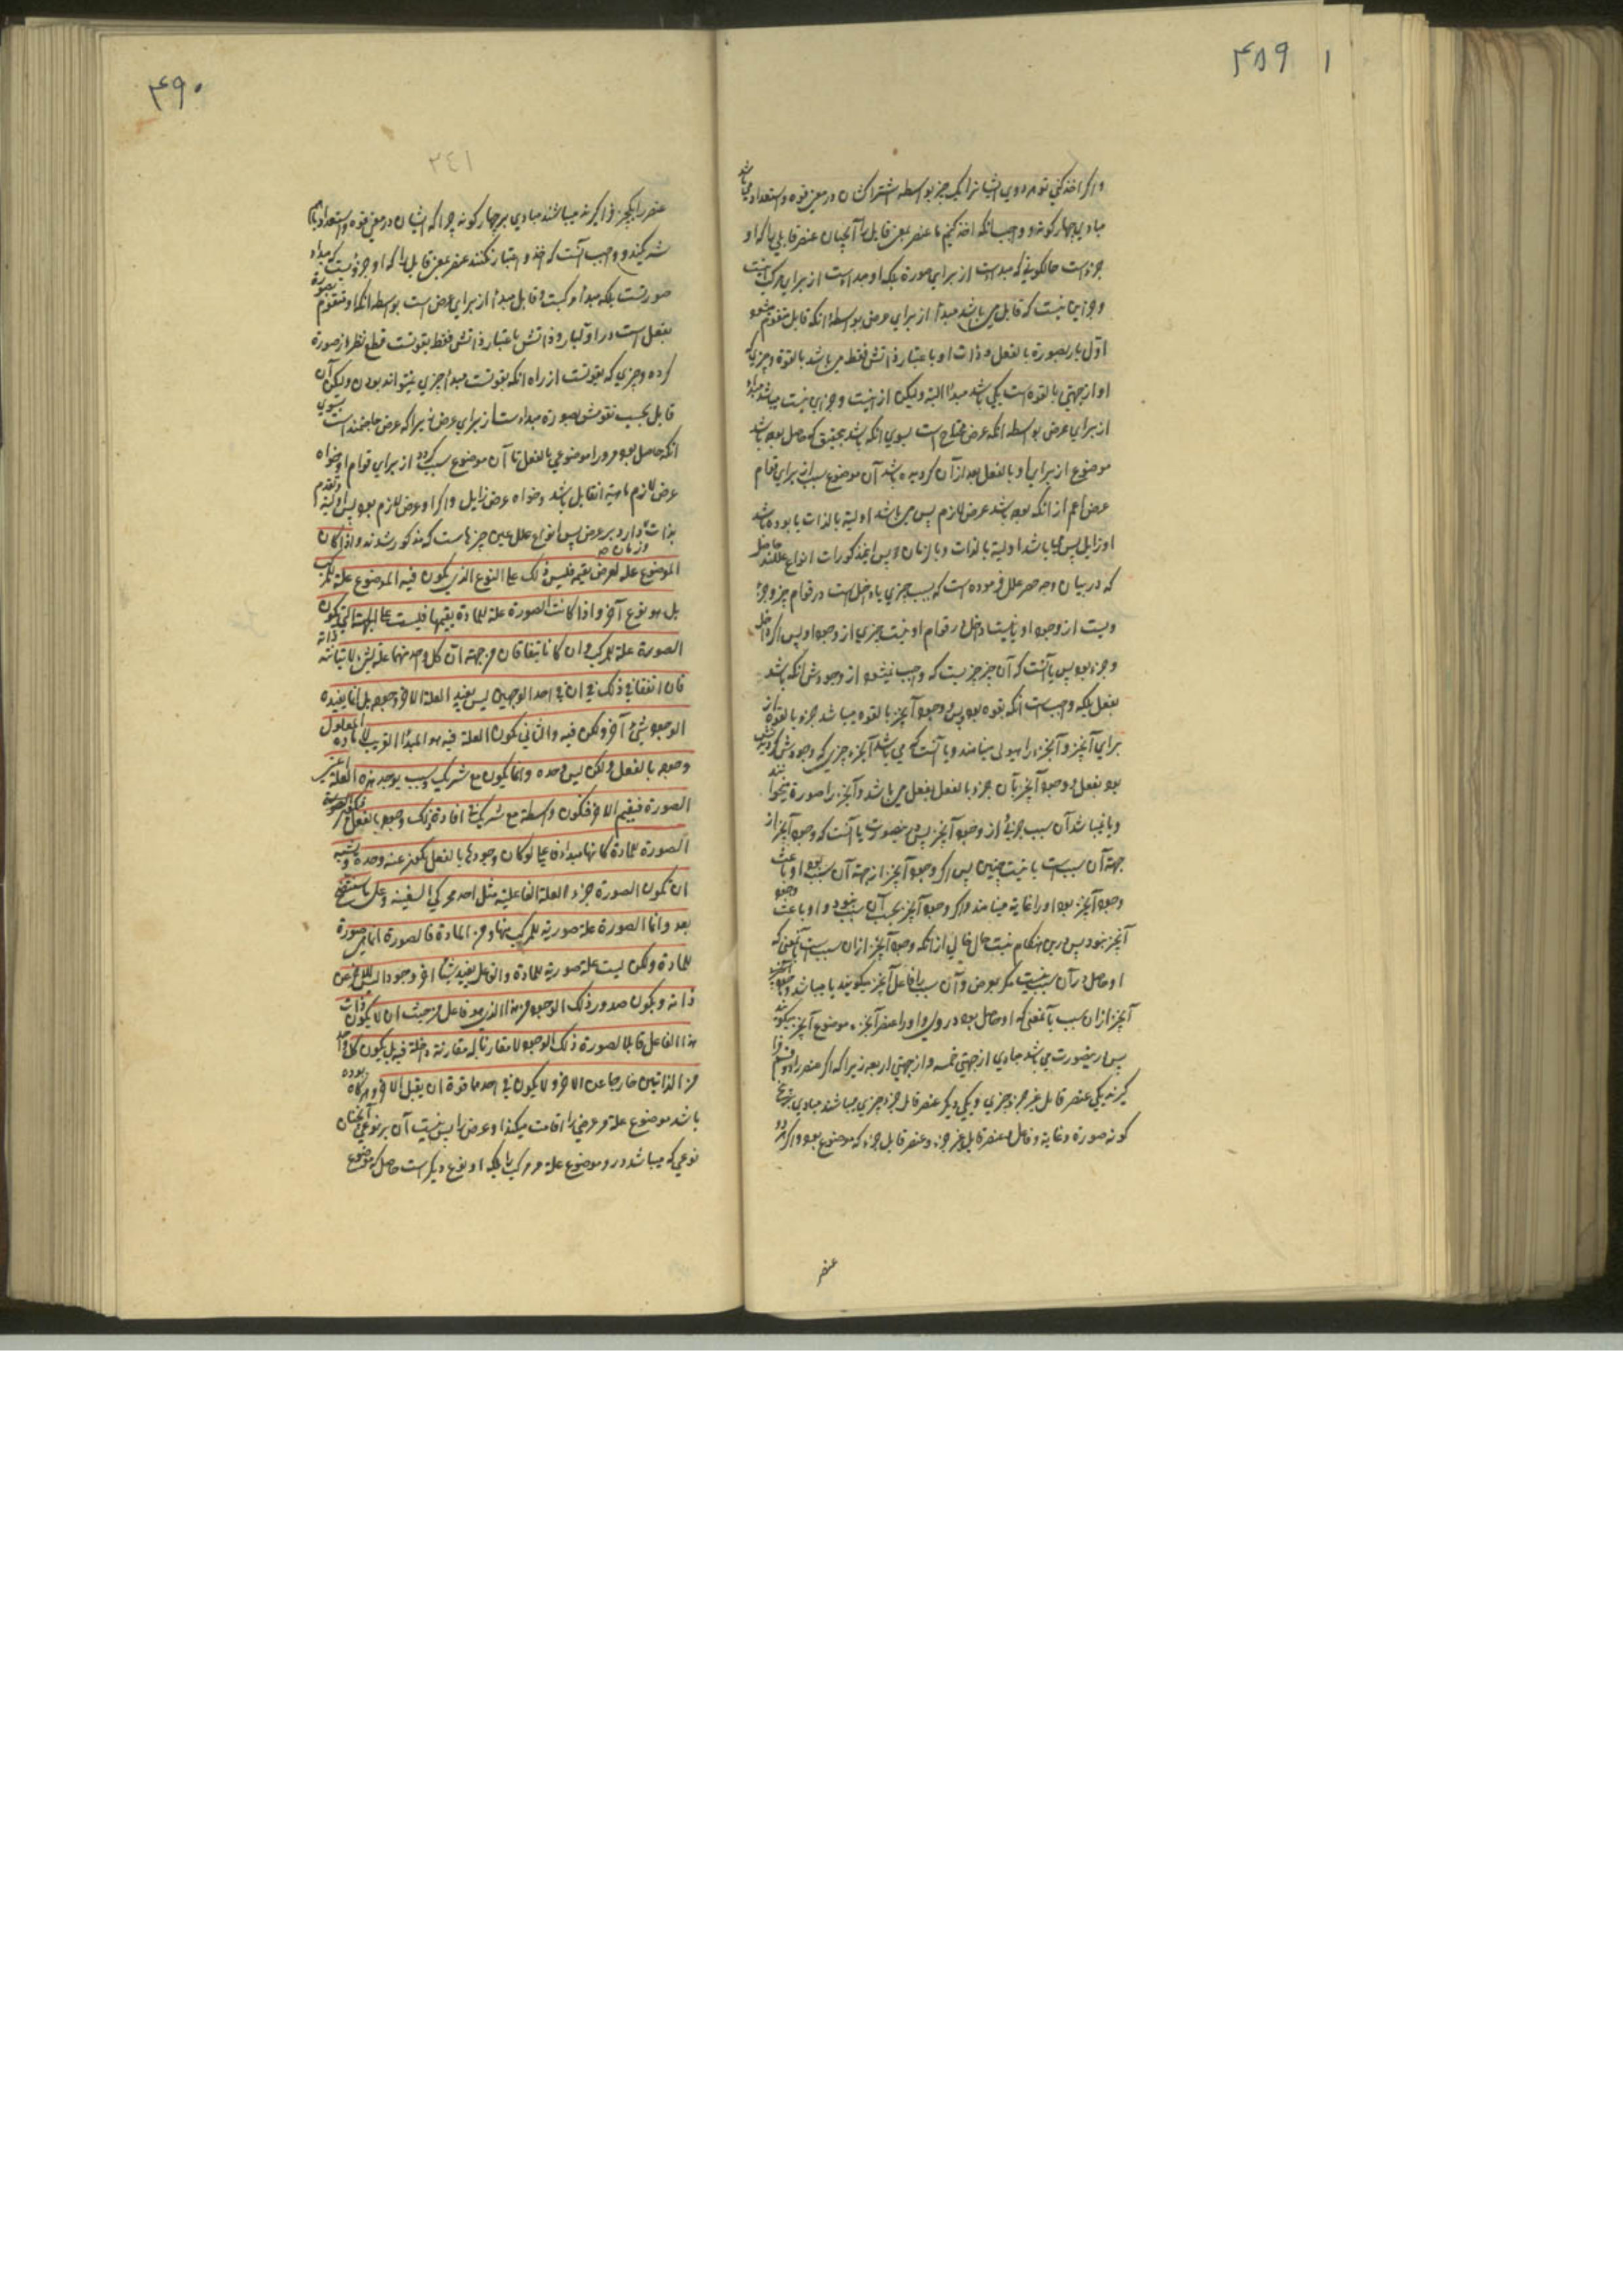 ۴۸۹ ۱
واگر اخذ کنی تو هر دوی ایشانرا یک چیز بواسطه اشتراکشان در معنی قوه و استعداد می باشد
مبادی چهار گونه و واجبست انکه اخذ نکنیم ما عنصر بمعنی قابل را آنچنان عنصر قابلی را که او
جزء است حالکونی که مبدء است از برای صورة بلکه او مبداء است از برای مرکب
و جز این نیست که قابل می باشد مبدأ از برای عرض بواسطه انکه قابل متقوم میشود
اوّل بار بصورة بالفعل و ذات او باعتبار ذاتش فقط می باشد بالقوة و چیزی که
او از جهتی بالقوه است نمی باشد مبدأ البته ولیکن از اینست و جز این نیست میباشد مبداء
از برای عرض بواسطه انکه عرض محتاج است بسوی انکه باشد بتحقیق که حاصل بوده باشد
موضوع از برای او بالفعل بعد از آن گردیده باشد آن موضوع سبب از برای قوام
عرض اعم از انکه بوده باشد عرض لازم پس می باشد اولیة بالذات یا بوده باشد
او زایل پس می باشد اولیة بالذات و بالزمان و پس اینمذکورات انواع عللند
که در بیان وجه حصر علل فرموده است که سبب چیزی یا داخل است در قوام چیز و جزء
ویست از وجود او یا نیست داخل در قوام او نیست جزی از وجود او پس اگر داخل
و جزء بود پس یا آنست که آن جز چیزیست که واجب نمیشود از وجودش انکه باشد
بفعل بلکه واجب است انکه بقوه بود پس وجود آنچیز بالقوه میباشد جزء بالقوه از
برای آنچیز و آنجزء را هیولی مینامند و یا آنست که می باشد آنجزء چیزی که وجودش گردیدنش
بود بفعل و وجود آنچیز بآن جزء بالفعل بفعل می باشد و آنجزء را صورة میخوانند
و یا نمیباشد آن سبب جزئی از وجود آنچیز پس درینصورت یا آنست که وجود آنچیز از
جهة آن سبب است یا نیست چنین پس اگر وجود آنچیز از جهة آن سبب بود او باعث
وجود آنچیز بود او را غایة مینامند و اگر وجود آنچیز بجهت آن سبب نبود و او باعث وجود
آنچیز نبود پس درین هنگام نیست حال خالی از انکه وجود آنچیز ازان سبب است بآنمعنی که
او حاصل در آن سبب نیست مگر بعرض و آن سبب را فاعل آنچیز میگویند یا میباشد وجود
آنچیز ازان سبب بآنمعنی که او حاصل بود در وی و او را عنصر آنچیز و موضوع آنچیز میگوند
پس درینصورت می باشد مبادی از جهتی خمسه و از جهتی اربعه زیرا که اگر عنصر را دو قسم
گیرند یکی عنصر قابل غیر جزء چیزی و یکی دیگر عنصر قابل جزء چیزی میباشند مبادی پنج
گونه صورة و غایة و فاعل و عنصر قابل غیر جزء و عنصر قابل جزء که موضوع بود و اگر هر دو
عنصر
۴۹۰
۲٤۱
عنصر را یکچیز فراگیرند میباشند مبادی بر چهار گونه چرا که ایشان در معنی قوه و استعداد باهم
شریکند و واجب آنست که اخذ و اعتبار نکنند عنصر بمعنی قابل را که او جزؤیست که مبداء
صورتست بلکه مبدأ مرکبست و قابل مبدأ از برای عرض است بواسطه انکه او متقوم بصورة
بفعل است در اوّلبار و ذاتش باعتبار ذاتش فقط بقوتست قطع نظر از صورة
کرده و چیزی که بقوتست از راه انکه بقوتست مبدأ چیزی نمیتواند بودن ولیکن آن
قابل بحسب تقومش بصورة مبداء است از برای عرض زیرا که عرض حاجتمند است بسوی
انکه حاصل بود مرورا موضوعی بالفعل تا آن موضوع سبب گردد از برای قوام او خواه
عرض لازم ماهیة انقابل باشد و خواه عرض زایل و اگر او عرض لازم بود پس اولیة و تقدم
بذات دارد بر عرض پس انواع علل عین چیزها ست که مذکور شدند و اذا کان
و زمان
الموضوع علة لعرض یقیمه فلیس ذلک علی النوع الذی یکون فیه الموضوع علة للمرکب
بل هو نوع آخر و اذا کانت الصورة علة للمادة یقیمها فلیست علی الجهة التی تکون
الصورة علة للمرکب و ان کانا یتفقان من جهة ان کل واحد منهما علة لشئ لا تباینه ذاته
فان اتفقا فی ذلک فی ان فی احد الوجهین لیس یفید العلة الآخر وجوده بل انما یفیده
الوجود شئ آخر ولکن فیه والثانی تکون العلة فیه هو المبدأ القریب لافادة المعلول
وجوده بالفعل ولکن لیس وحده وانما یکون مع شریک وسبب یوجد هذه العلة اعنی
الصورة فیقیم الآخر فتکون واسطة مع شریک فی افادة ذلک وجوده بالفعل فتکون
الصورة للمادة کانها مبداء فاعلی لو کان وجودها بالفعل یکون عنه وحده و یشبه
ان تکون الصورة جزء العلة الفاعلیة مثل احد محرکی السفینة و علی ما سیتضح
بعد وانما الصورة علة صوریة للمرکب منها و من المادة فالصورة انما هی صورة
للمادة ولکن لیست علة صوریة للمادة والفاعل یفید شیئا آخر وجودا لیس للآخر عن
ذاته ویکون صدور ذلک الوجود من هذا الذی هو فاعل من حیث ان لا یکون ذات
هذا الفاعل قابلا لصورة ذلک الوجود لا مقارنا له مقارنة داخلة فیه بل یکون کل واحد
من الذاتین خارجا عن الآخر و لا یکون فی احدهما قوة ان یقبل الآخر و هر گاه بوده
باشد موضوع علة مر عرضی را اقامت میکند او عرض را پس نیست آن بر نوعی آنچنان
نوعی که میباشد درو موضوع علة مر مرکب را بلکه او نوع دیگر است حاصل که موضوع